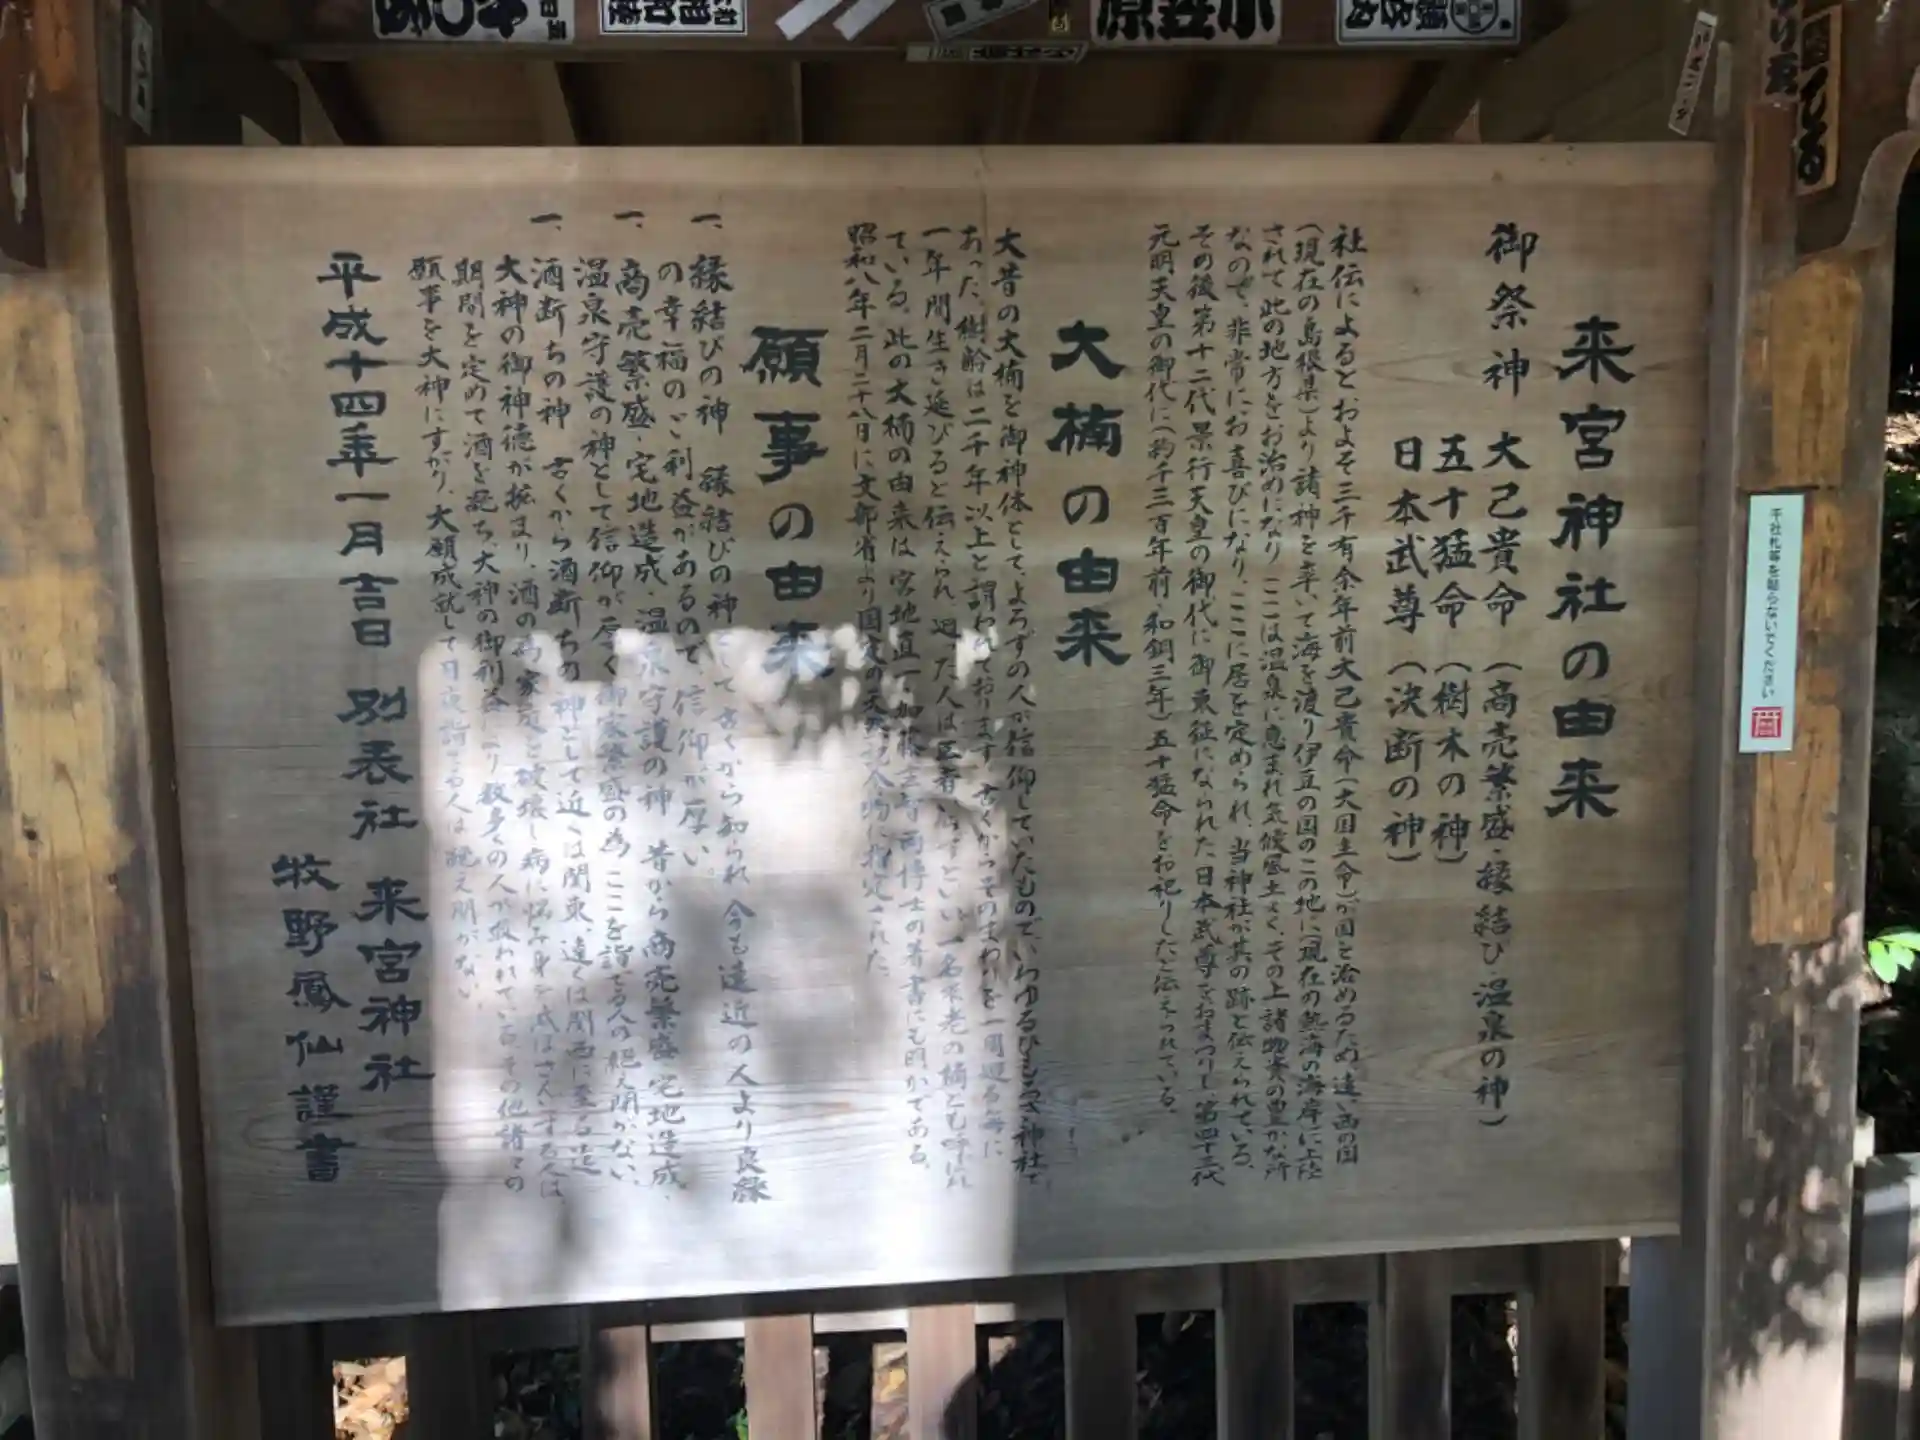 来宮神社の由来
御祭神 大己貴命(商売繁盛・縁結び・温泉の神)
五十猛命(樹木の神)
日本武尊(決断の神)
社伝によるとおよそ三千有余年前大己貴命(大国主命)が国を治めるため、遠い西の国
(現在の島根県)より諸神を率いて海を渡り伊豆の国のこの地に(現在の熱海の海岸に上陸
されて此の地方をお治めになり ここは温泉に恵まれ気候風土よく、その上諸物実の豊かな所
なので、非常にお喜びになり、ここに居を定められ、当神社が其の跡と伝えられている。
その後第十二代景行天皇の御代に御東征になられた日本武尊をおまつりし、第四十三代
元明天皇の御代に(約千三百年前、和銅三年)五十猛命をお祀りしたと伝えられている。
大楠の由来
大昔の大楠を御神体として、よろずの人が信仰していたもので、いわゆるひもろぎ神社で
あった。樹齢は二千年以上と謂われております 古くからそのまわりを一周廻る毎に
一年間生き延びると伝えられ、廻った人は医者いらずといい 一名不老の楠とも呼ばれ
ている。此の大楠の由来は宮地直一、加藤玄智両博士の著書にも明かである。
昭和八年二月二十八日に文部省より国定の天然記念物に指定された。
願事の由来
一、縁結びの神 縁結びの神として古くから知られ 今も遠近の人より良縁
の幸福のご利益があるので、信仰が厚い。
一、商売繁盛・宅地造成・温泉守護の神 昔から商売繁盛、宅地造成、
温泉守護の神として信仰が厚く御家繁盛の為 ここを詣でる人の絶え間がない。
一、酒断ちの神 古くから酒断ちの神として近くは関東、遠くは関西に至る迄
大神の御神徳が拡まり、酒の為家庭を破壊し病に悩み身を滅ぼさんとする人は、
期間を定めて酒を慎ち、大神の御利益により数多くの人が救われている。その他諸々の
願事を大神にすがり、大願成就して日夜詣でる人は絶え間がない。
平成十四年一月吉日 別表社 来宮神社
牧野鳳仙謹書
千社札等を貼らないでください